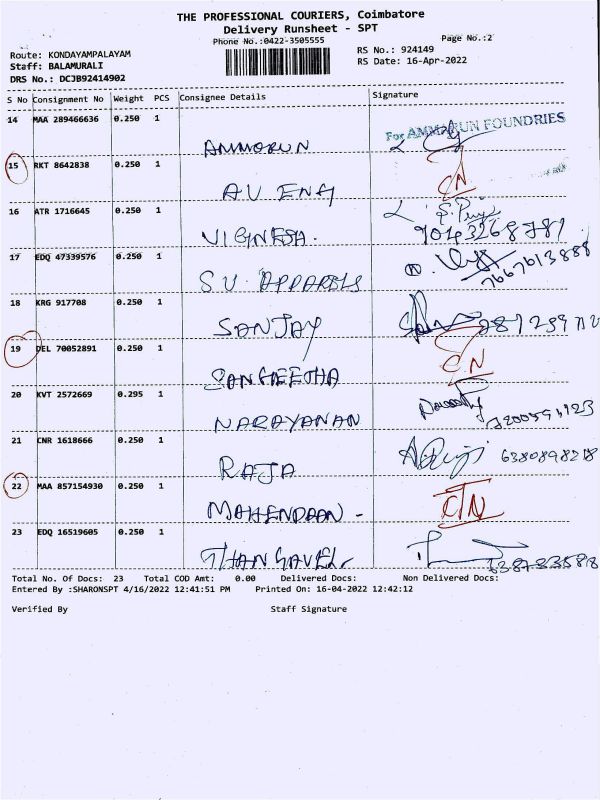 THE PROFESSIONAL COURIERS, Coimbatore
Delivery Runsheet - SPT
Phone No.:0422-3505555
Page No.:2
Route: KONDAYAMPALAYAM
RS No.: 924149
Staff: BALAMURALI
RS Date: 16-Apr-2022
DRS No.: DCJB92414902
S No Consignment No Weight PCS Consignee Details Signature
14 MAA 289466636 0.250 1
For AMMARUN FOUNDRIES
AMMARUN
15 RKT 8642838 0.250 1
AU ENG
CN
16 ATR 1716645 0.250 1
VIGNESH.
9043268781
17 EDQ 47339576 0.250 1
S.U. APPARELS
7667613888
18 KRG 917708 0.250 1
SANJAY
19 DEL 70052891 0.250 1
SANGEETHA
CN
20 KVT 2572669 0.295 1
NARAYANAN
21 CNR 1618666 0.250 1
RAJA
6380898218
22 MAA 857154930 0.250 1
MAHENDRAN -
CN
23 EDQ 16519605 0.250 1
THANGAVEL
Total No. Of Docs: 23 Total COD Amt: 0.00 Delivered Docs: Non Delivered Docs:
Entered By :SHARONSPT 4/16/2022 12:41:51 PM Printed On: 16-04-2022 12:42:12
Verified By Staff Signature